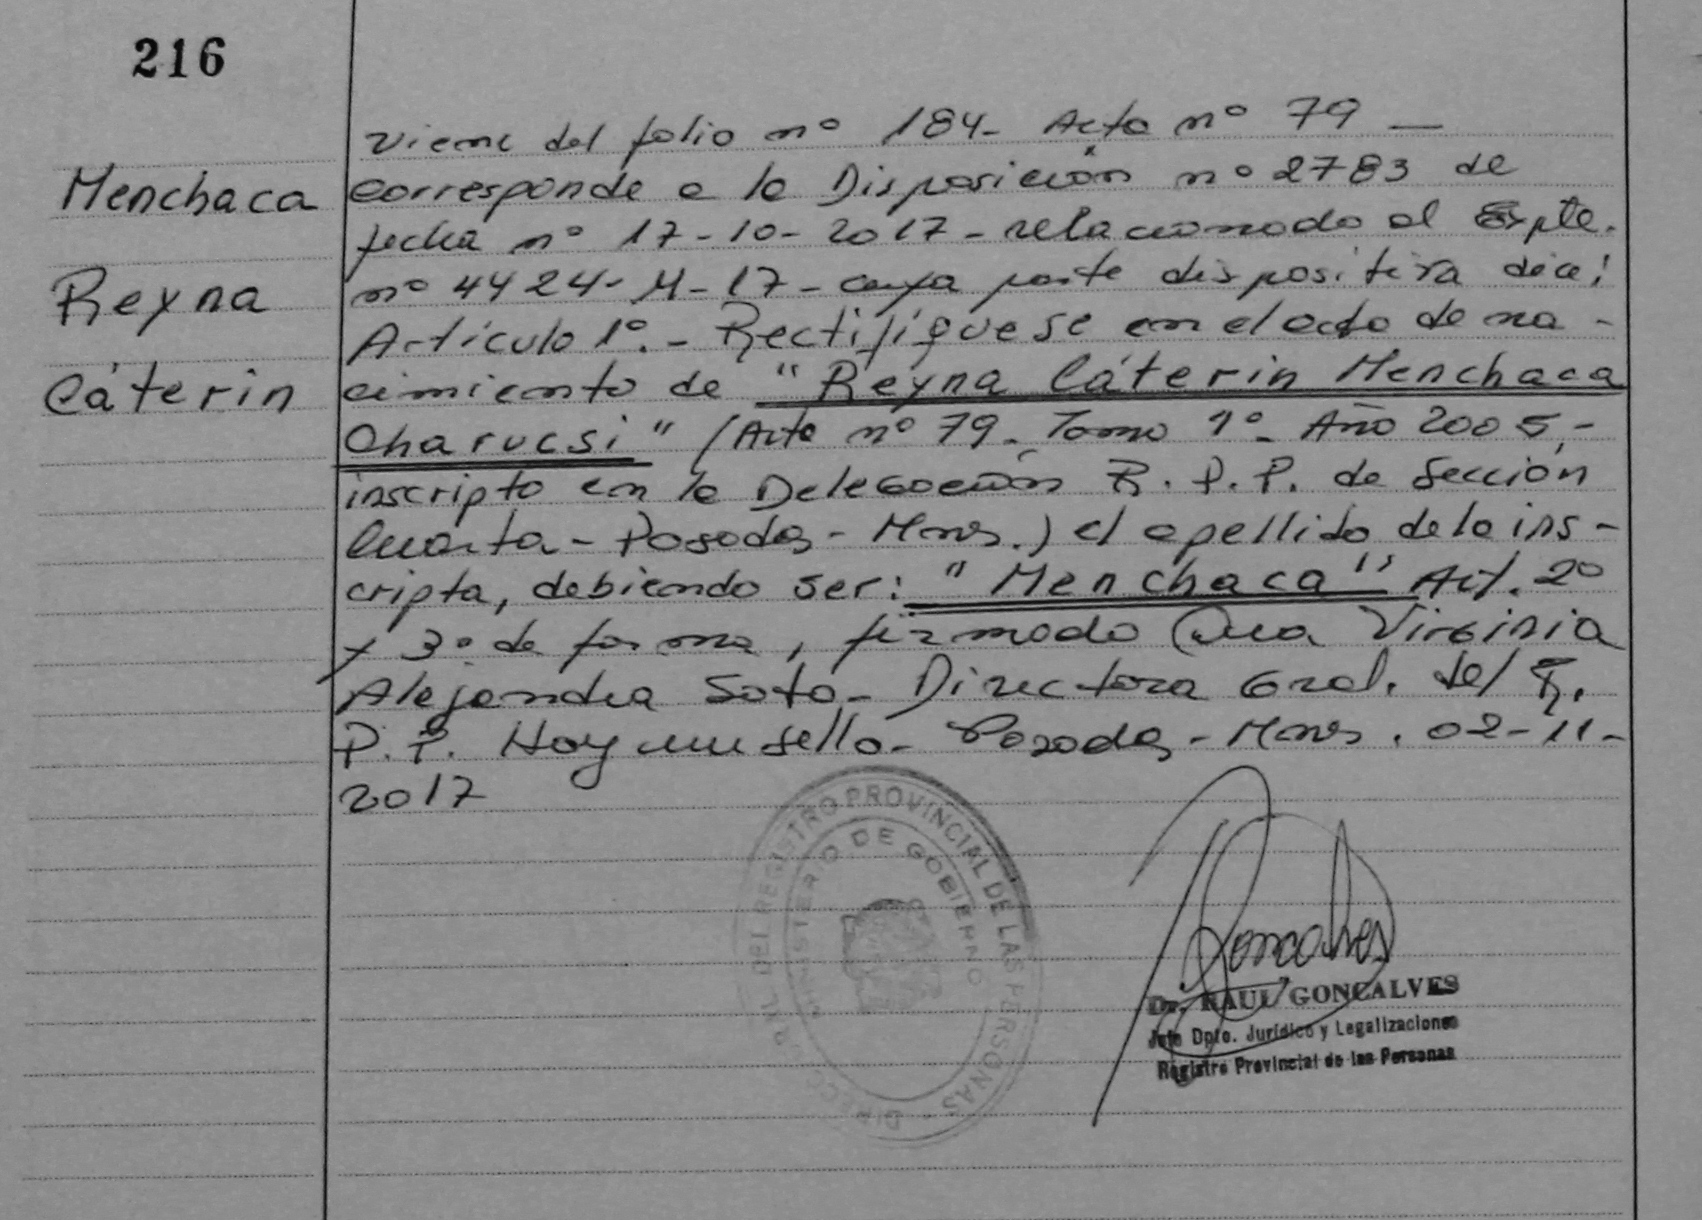 216
Menchaca
Reyna
Cáterin
viene del folio nº 184- Acta nº 79 —
corresponde a la Disposición nº 2783 de
fecha nº 17-10-2017- relacionado al Expte.
nº 4424-M-17- cuya parte dispositiva dice:
Artículo 1º.- Rectifíquese en el acta de na-
cimiento de "Reyna Cáterin Menchaca
Charucsi" (Acta nº 79- Tomo 1º- Año 2005,-
inscripto en la Delegación R.P.P. de Sección
Cuarta- Posadas- Mnes.) el apellido de la ins-
cripta, debiendo ser: "Menchaca" Art. 2º
y 3º de forma, firmado Dra Virginia
Alejandra Soto- Directora Gral. del R.
P.P. Hay un sello- Posadas- Mnes. 02-11-
2017
DEL REGISTRO PROVINCIAL DE LAS PERSONAS
MINISTERIO DE GOBIERNO
Goncalves
Dr. RAUL GONCALVES
Jefe Dpto. Jurídico y Legalizaciones
Registro Provincial de las Personas